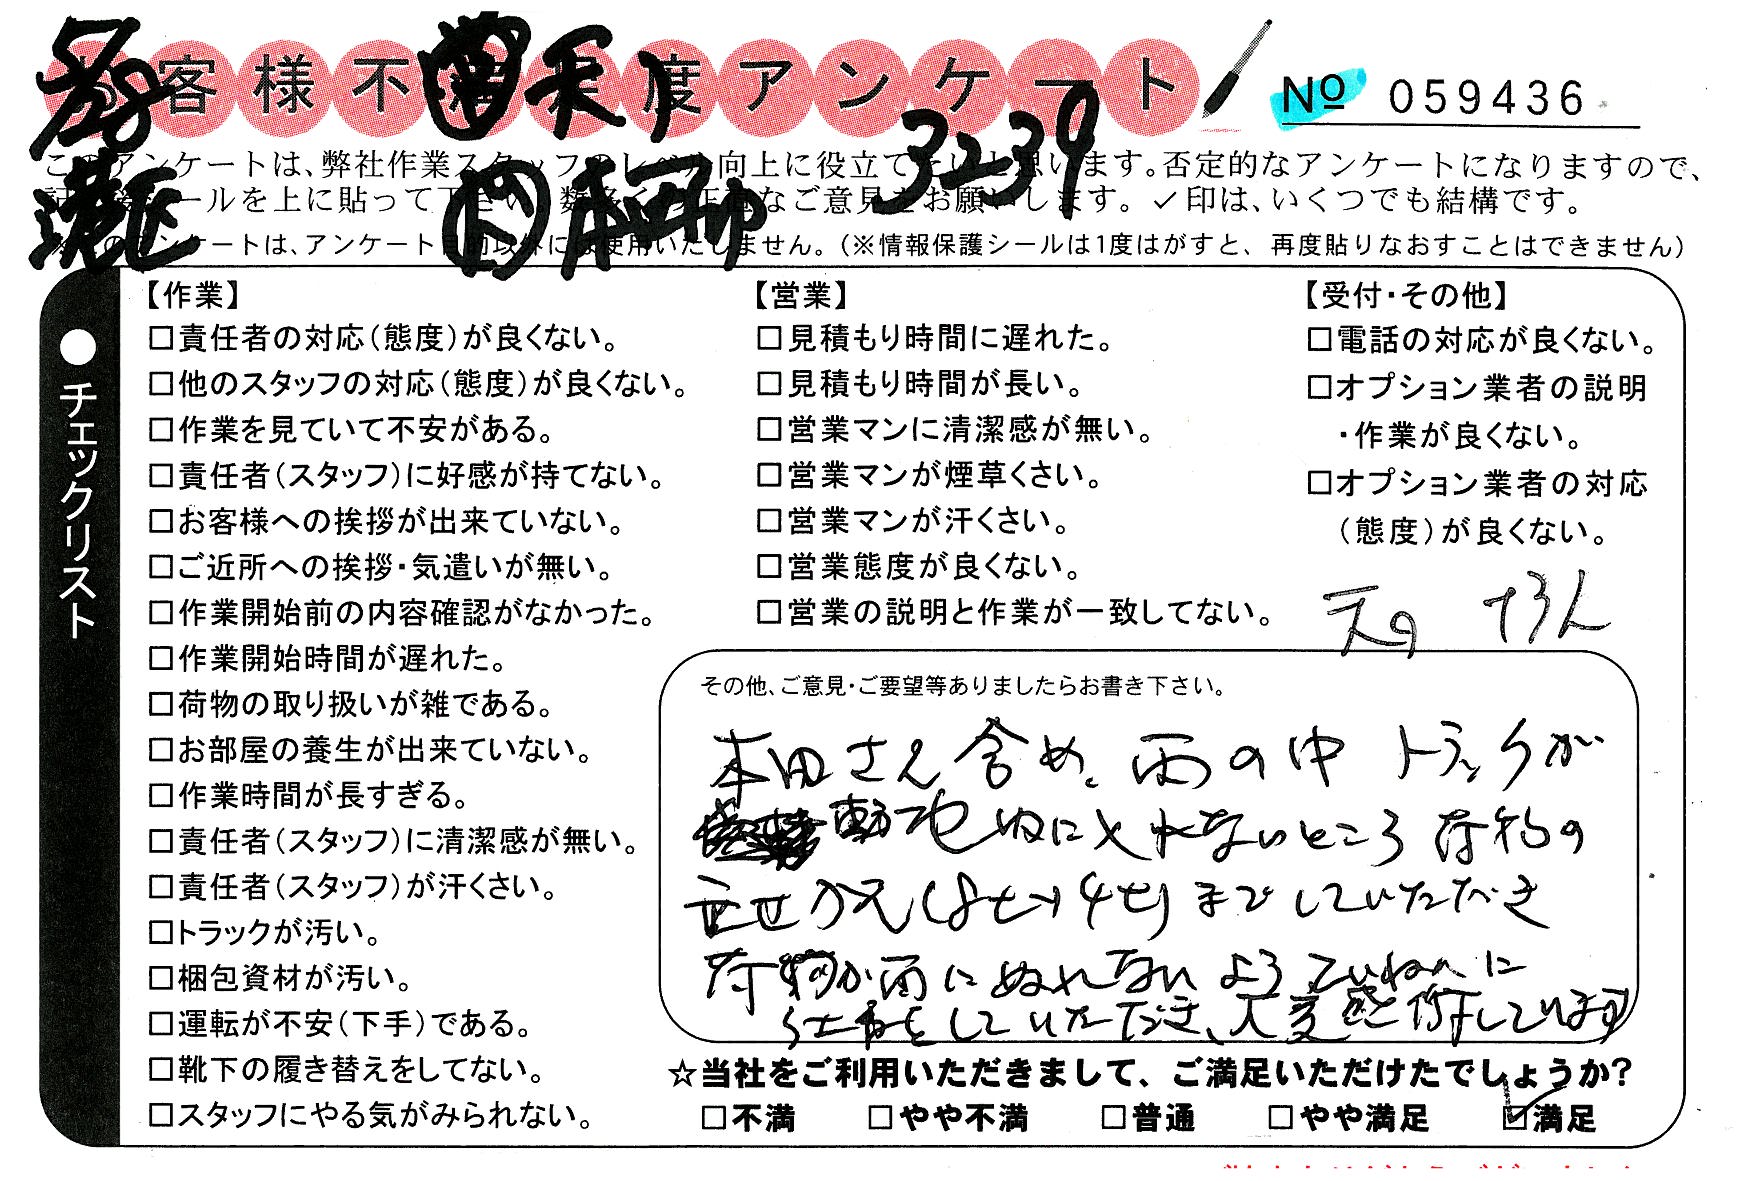 客様不満足度アンケート
№ 059436
3239
このアンケートは、弊社作業スタッフのレベル向上に役立てたいと思います。否定的なアンケートになりますので、
シールを上に貼って下さい。数多くの正直なご意見をお願いします。✓印は、いくつでも結構です。
港区
本田
※このアンケートは、アンケート目的以外には使用いたしません。(※情報保護シールは1度はがすと、再度貼りなおすことはできません)
●チェックリスト
【作業】
□責任者の対応(態度)が良くない。
□他のスタッフの対応(態度)が良くない。
□作業を見ていて不安がある。
□責任者(スタッフ)に好感が持てない。
□お客様への挨拶が出来ていない。
□ご近所への挨拶・気遣いが無い。
□作業開始前の内容確認がなかった。
□作業開始時間が遅れた。
□荷物の取り扱いが雑である。
□お部屋の養生が出来ていない。
□作業時間が長すぎる。
□責任者(スタッフ)に清潔感が無い。
□責任者(スタッフ)が汗くさい。
□トラックが汚い。
□梱包資材が汚い。
□運転が不安(下手)である。
□靴下の履き替えをしてない。
□スタッフにやる気がみられない。
【営業】
□見積もり時間に遅れた。
□見積もり時間が長い。
□営業マンに清潔感が無い。
□営業マンが煙草くさい。
□営業マンが汗くさい。
□営業態度が良くない。
□営業の説明と作業が一致してない。
【受付・その他】
□電話の対応が良くない。
□オプション業者の説明
・作業が良くない。
□オプション業者の対応
(態度)が良くない。
その他、ご意見・ご要望等ありましたらお書き下さい。
本田さん含め、雨の中 トラックが
敷地内に入れないところ 荷物の
のせかえ(8t→4t)までしていただき
荷物が雨にぬれないようていねいに
仕事をしていただき、大変感謝しています
☆当社をご利用いただきまして、ご満足いただけたでしょうか?
□不満 □やや不満 □普通 □やや満足 ☑満足